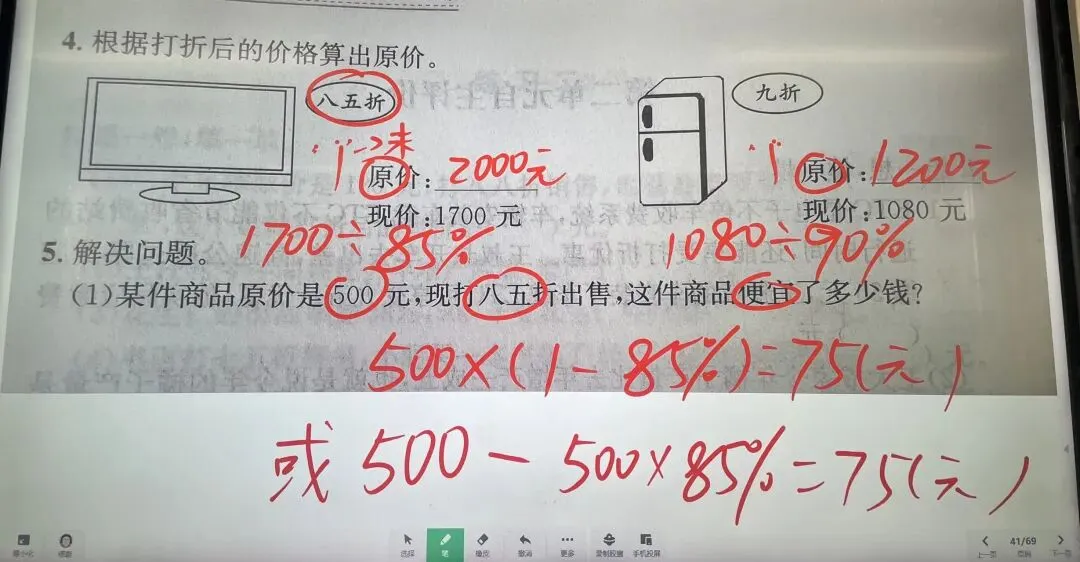 4. 根据打折后的价格算出原价。
八五折
九折
"1"→未
原价：2000元
"1"
原价：1200元
现价：1700元
现价：1080元
1700÷85%
1080÷90%
5. 解决问题。
(1)某件商品原价是500元，现打八五折出售，这件商品便宜了多少钱？
500×(1－85%)＝75(元)
或 500－500×85%＝75(元)
最小化
选择
笔
橡皮
撤消
更多
录制胶囊
手机投屏
上一页
41/69
下一页